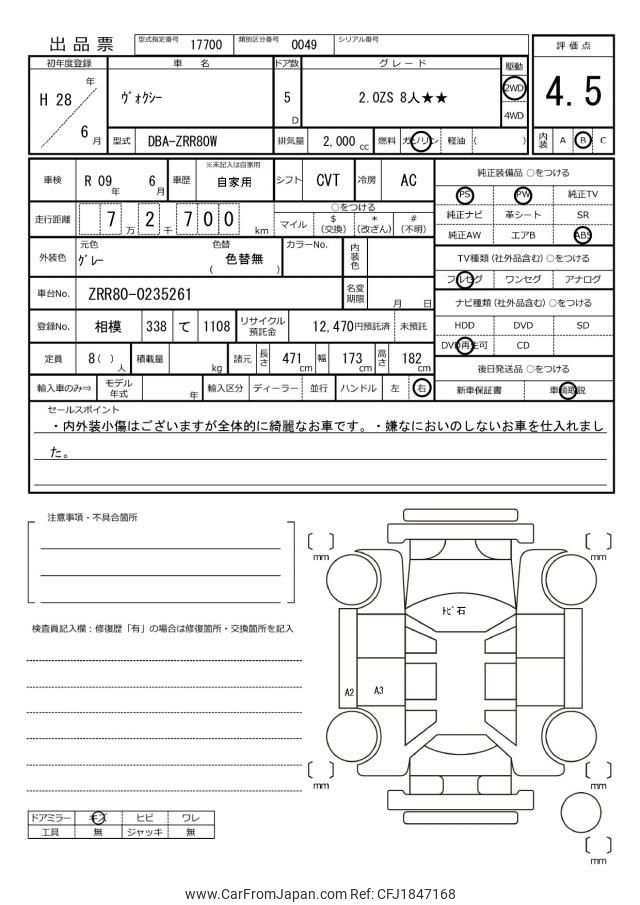 出品票 型式指定番号 17700 類別区分番号 0049 シリアル番号
評価点
4.5
内装 A B C
初年度登録 車名 ドア数 グレード 駆動
H 28 年 6 月 ヴォクシー 5 D 2.0ZS 8人★★ 2WD 4WD
型式 DBA-ZRR80W 排気量 2,000 cc 燃料 ガソリン 軽油 ( )
車検 R 09 年 6 月 車歴 ※未記入は自家用 自家用 シフト CVT 冷房 AC
走行距離 7 2 7 0 0 万 千 km
○をつける
マイル $ (交換) * (改ざん) # (不明)
外装色 元色 グレー 色替 ( 色替無 ) カラーNo. 内装色
車台No. ZRR80-0235261 名変期限 月 日
登録No. 相模 338 て 1108 リサイクル預託金 12,470円預託済 未預託
定員 8 ( ) 人 積載量 kg 諸元 長さ 471 cm 幅 173 cm 高さ 182 cm
輸入車のみ⇒ モデル年式 年 輸入区分 ディーラー 並行 ハンドル 左 右
純正装備品 ○をつける
PS PW 純正TV
純正ナビ 革シート SR
純正AW エアB ABS
TV種類 (社外品含む) ○をつける
フルセグ ワンセグ アナログ
ナビ種類 (社外品含む) ○をつける
HDD DVD SD
DVD再生可 CD
後日発送品 ○をつける
新車保証書 車輌取説
セールスポイント
・内外装小傷はございますが全体的に綺麗なお車です。・嫌なにおいのしないお車を仕入れまし
た。
注意事項・不具合箇所
検査員記入欄：修復歴「有」の場合は修復箇所・交換箇所を記入
mm
mm
トビ石
A2 A3
mm
mm
mm
ドアミラー キズ ヒビ ワレ
工具 無 ジャッキ 無
www.CarFromJapan.com Ref: CFJ1847168